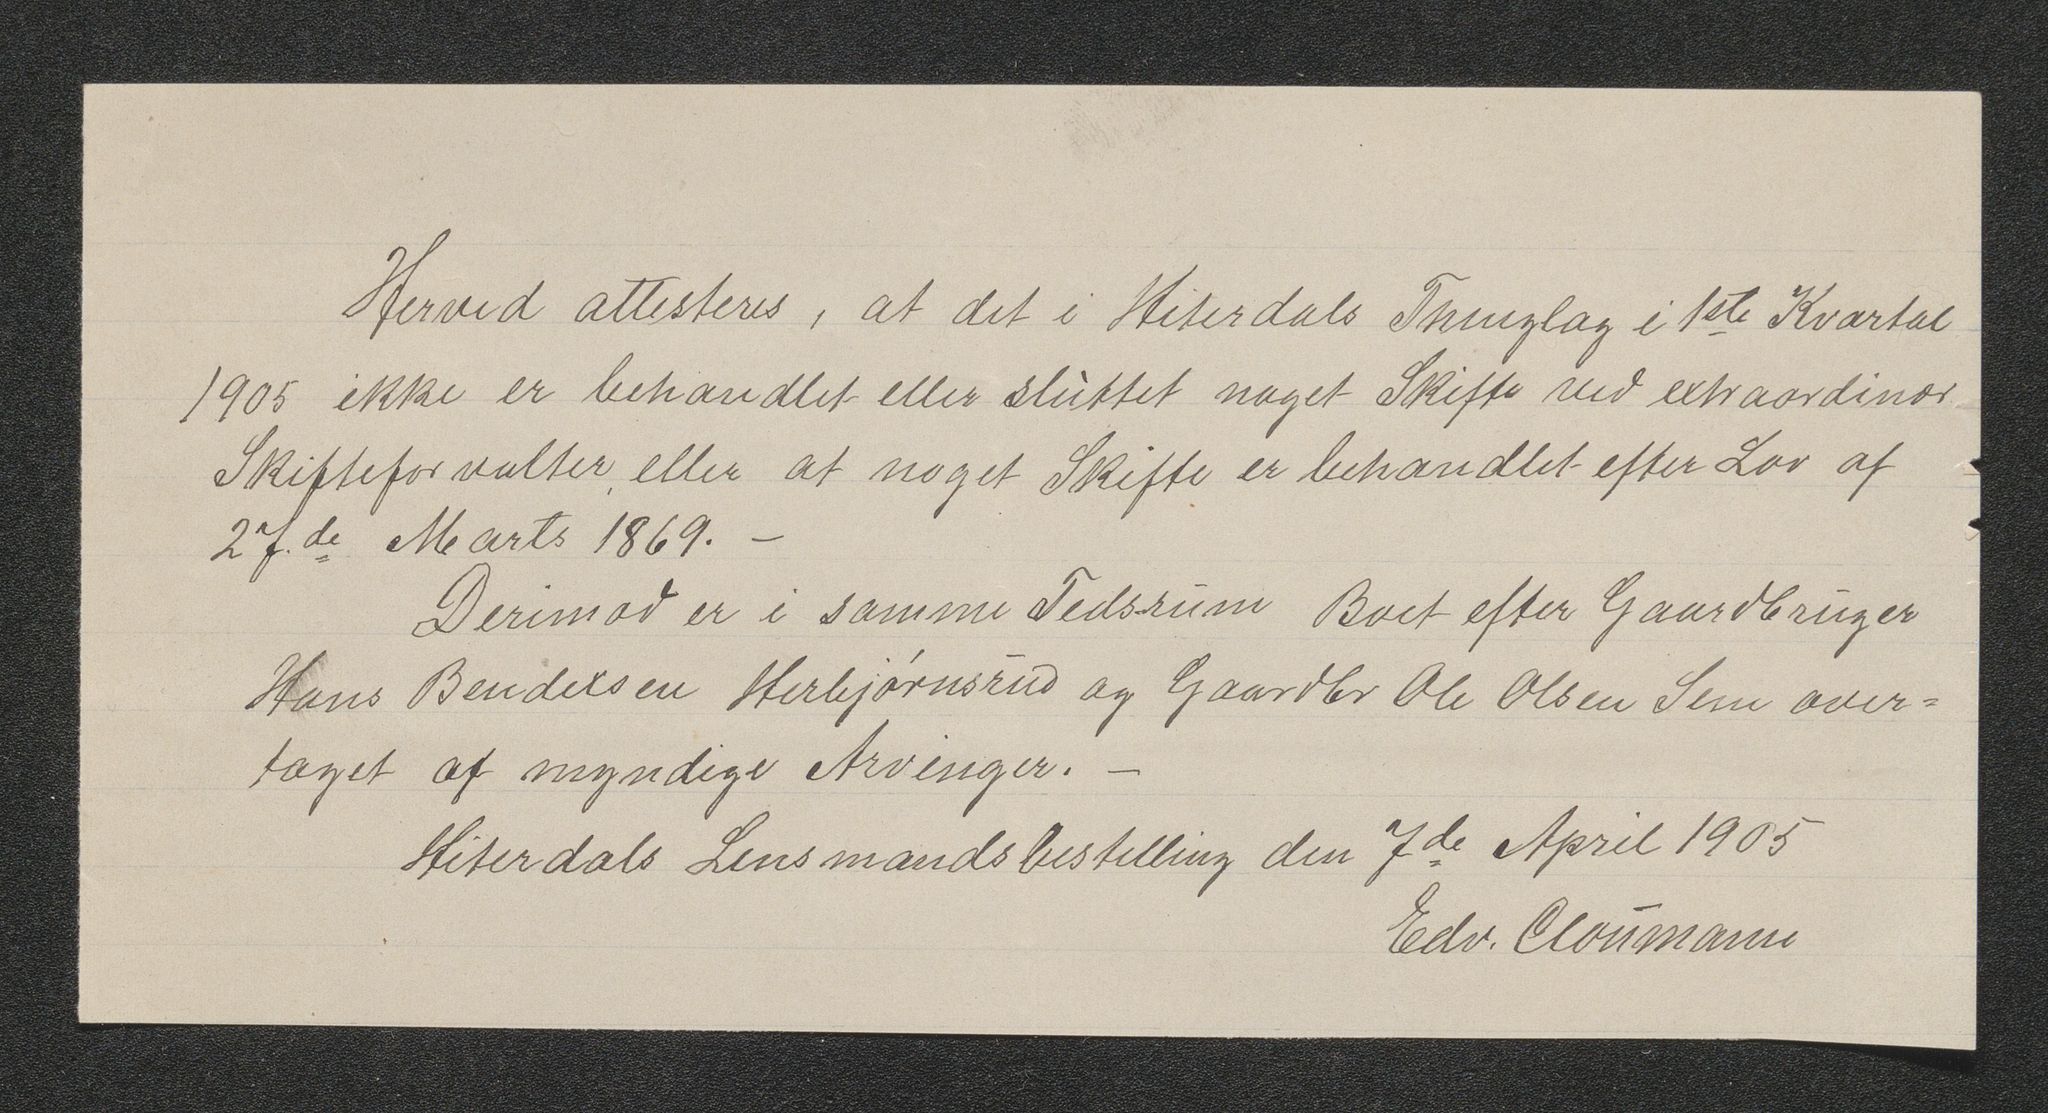 Herved attesteres, at det i Hiterdals Thinglag i 1ste Kvartal
1905 ikke er behandlet eller sluttet noget Skifte ved extraordinær
Skifteforvalter, eller at noget Skifte er behandlet efter Lov af
27.de Marts 1869. –
Derimod er i samme Tidsrum Boet efter Gaardbruger
Hans Bendixsen Herbjørnsrud og Gaardbr Ole Olsen Sem over=
taget af myndige Arvinger. –
Hiterdals Lensmandsbestilling den 7de April 1905
Edv. Cloumann